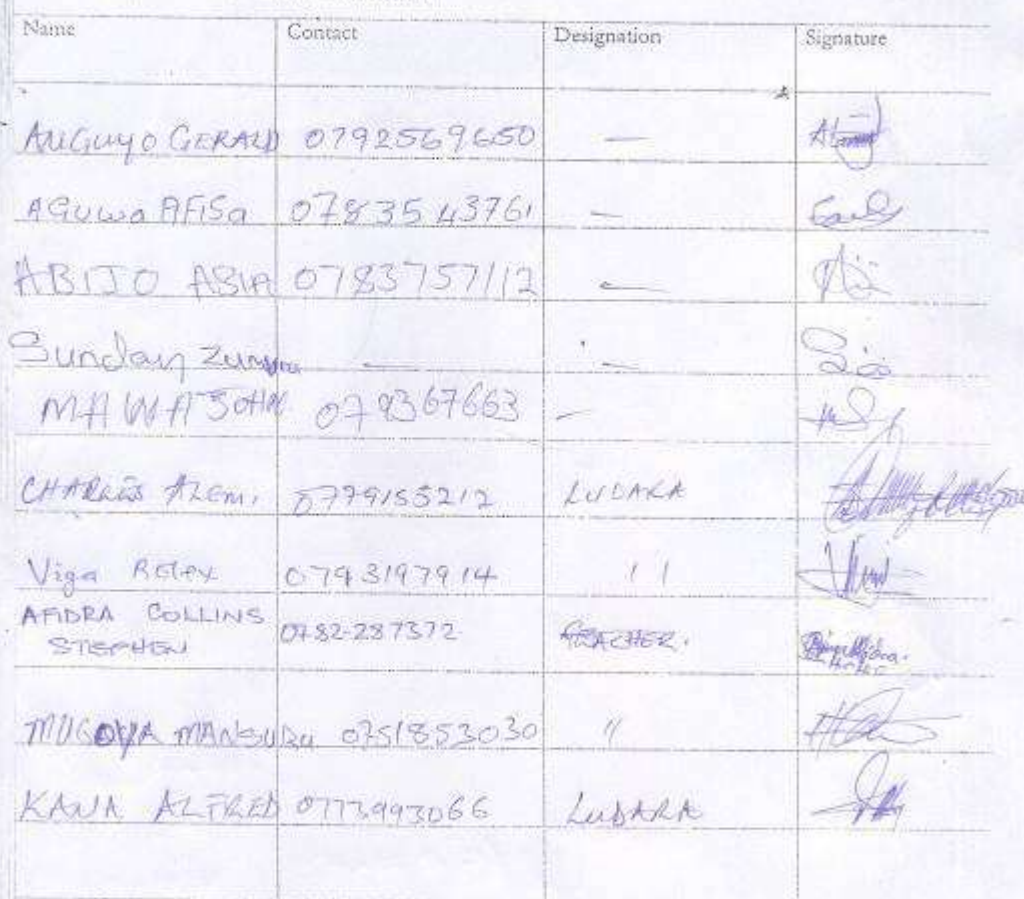 Name Contact Designation Signature
ANGUYO GERALD 0792569650 —
AGUWA AFISA 0783543761 —
ABIJO ASIA 0783757112 —
Sunday — —
MAWA JOHN 079367663 —
CHARLES ALEMI 0779155212 LUDARA
Viga 0793197914 11
AFIDRA COLLINS
STEPHEN 0782-287372 TEACHER.
MUGOYA MANSURU 0751853030 "
KAWA ALFRED 0773993066 LUDARA